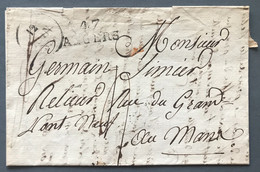 47
ANGERS
Monsieur
Germain Simier
Relieur Rue du Grand
Pont Neuf
Au Mans